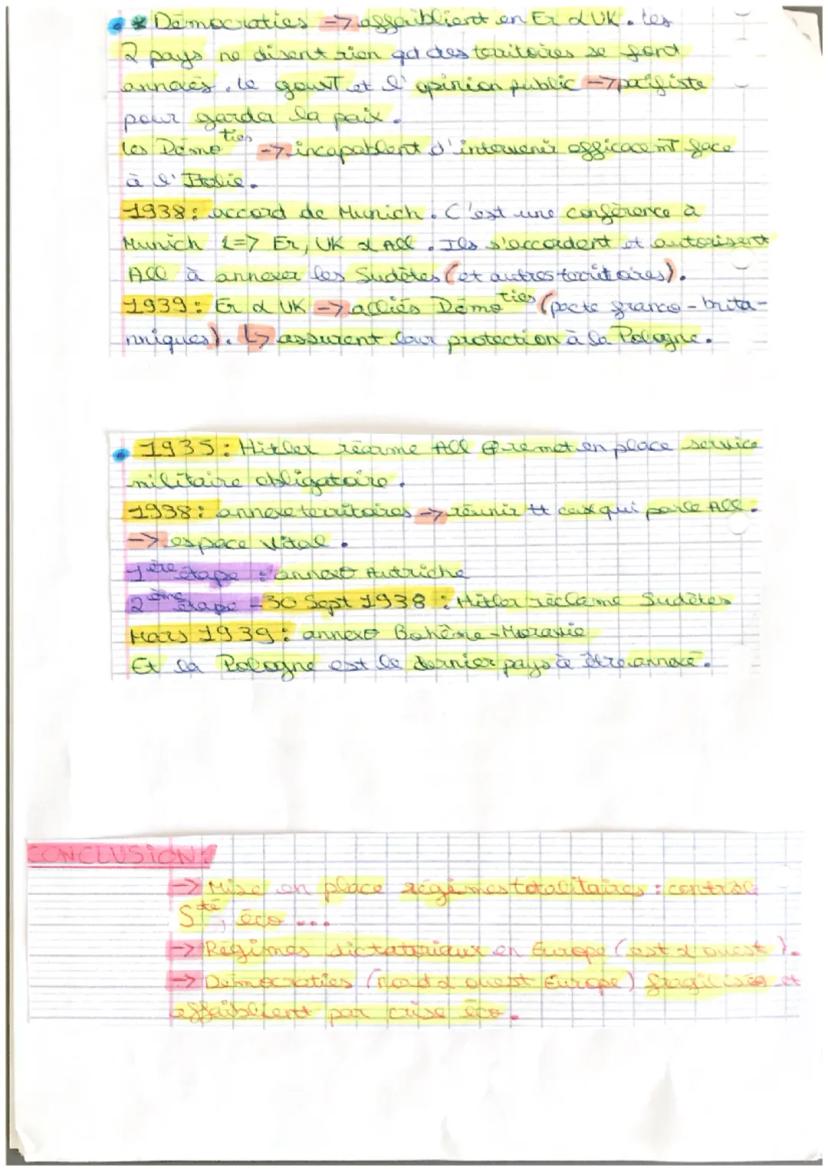 * Démocraties -> affaiblient en Fr & UK. les
2 pays ne disent rien qd des territoires se font
annexés. le gouvT et l'opinion public -> pacifiste
pour garder la paix.
les Démoties -> incapablent d'intervenir efficacemT face
à l'Italie.
1938: accord de Munich. C'est une conférence à
Munich <=> Fr, UK & All. Ils s'accordent et autorisent
All à annexer les Sudètes (et autres territoires).
1939: Fr & UK -> alliés Démoties (pacte franco-brita-
nniques). ↳ assurent leur protection à la Pologne.
1935: Hitler réarme All & remet en place service
militaire obligatoire.
1938: annexe territoires -> réunir tt ceux qui parle All.
-> espace vital.
1ère étape : annexe Autriche
2ème étape - 30 Sept 1938 : Hitler réclame Sudètes
Mars 1939: annexe Bohême-Moravie
Et la Pologne est le dernier pays à être annexé.
CONCLUSION:
-> Mise en place régimes totalitaires : contrôle
Sté, éco ...
-> Régimes dictatoriaux en Europe (est & ouest).
-> Démocraties (nord & ouest Europe) fragilisée et
affaiblient par crise éco.